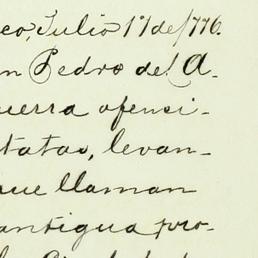 co, Julio 17 de/776.
n Pedro del A-
uerra ofensi-
tatas, levan-
que llaman
antigua pro-